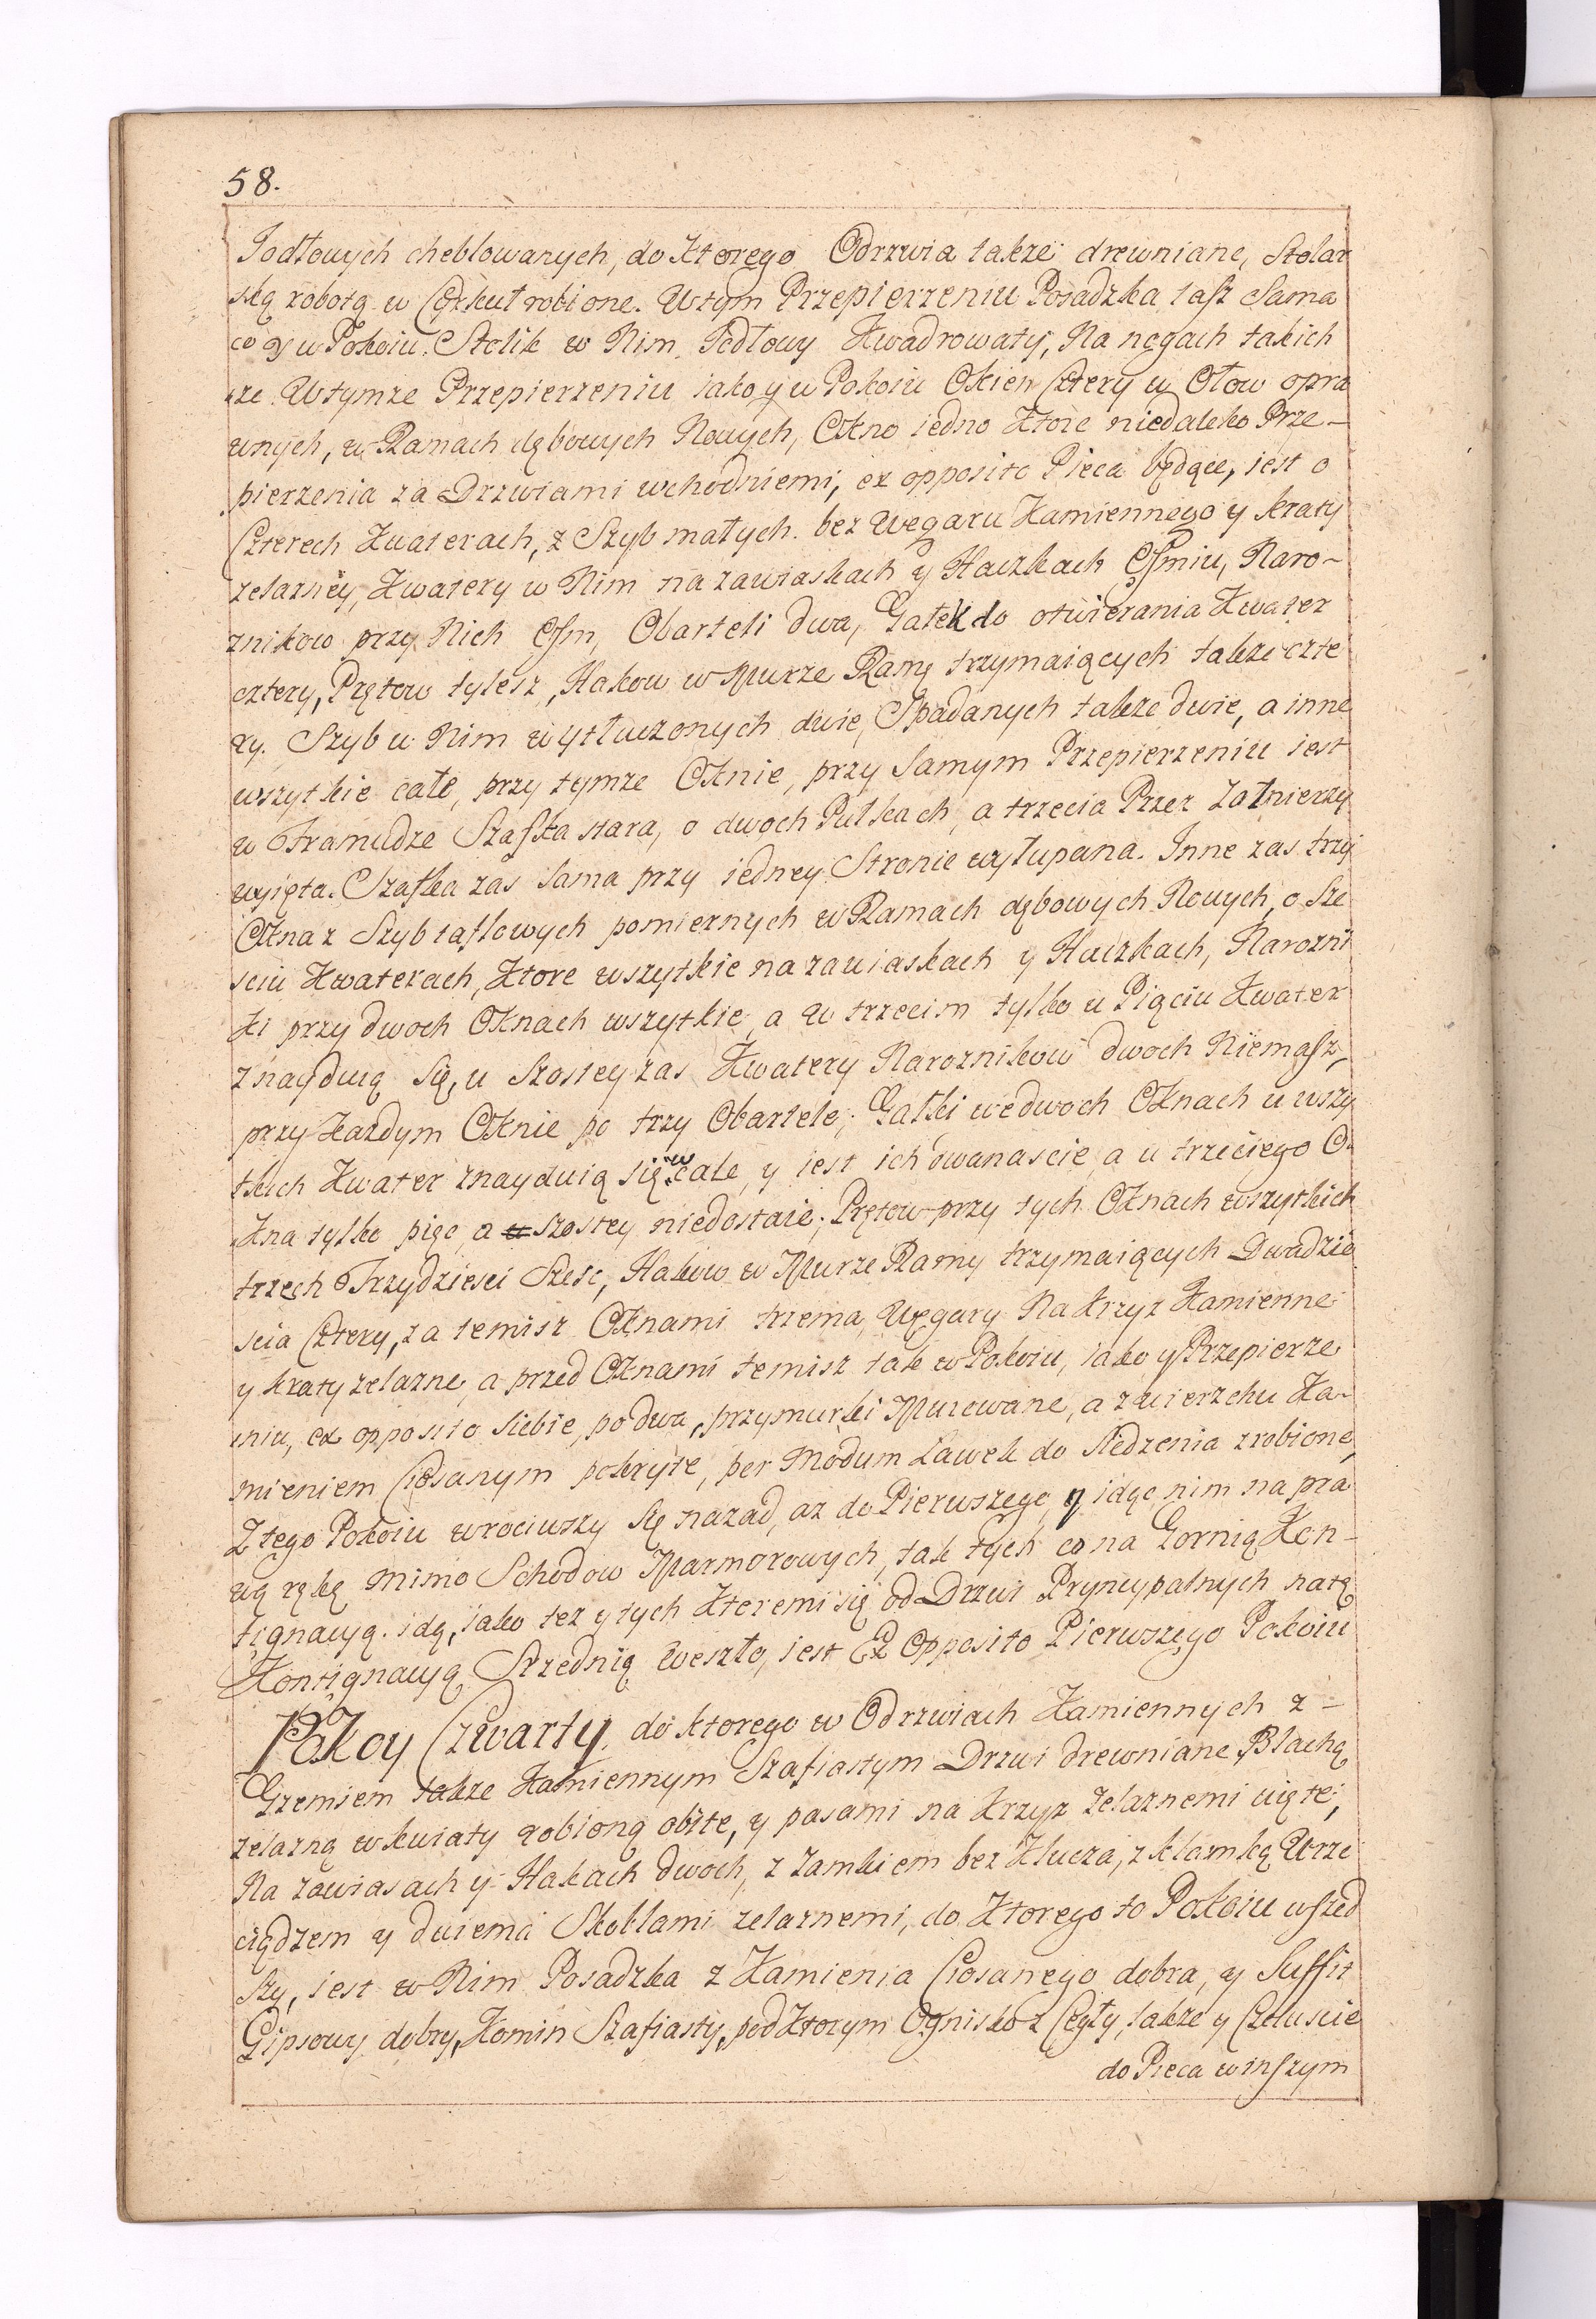 58.
Jodłowych cheblowanych, do Ktorego Odrzwia także drewniane, Stolar
ską robotą w Cętkuł robione. W tym Przepierzeniu Posadzka tasz Sama
co y w Pokoiu. Stolik w Nim Jodłowy Kwadrowaty, Na nogach takich
że. W tymże Przepierzeniu iako y w Pokoiu Okien Cztery w Ołow opra
wnych, w Ramach dębowych Nowych, Okno iedno Ktore niedaleko Prze-
pierzenia za Drzwiami wchodniemi, ex opposito Pieca będące, iest o
Czterech Kwaterach, z Szyb małych. bez Węgaru Kamiennego y kraty
żelazney, Kwatery w Nim na zawiaskach y Haczkach Ośmiu, Naro-
żnikow przy Nich Ośm, Obarteli dwa, Gałek do otwierania Kwater
cztery, Prętow tylesz, Hakow w Murze Ramę trzymaiących także czte
ry. Szyb w Nim wytłuczonych dwie, Spadanych także dwie, a inne
wszytkie całe, przy tymże Oknie, przy samym Przepierzeniu iest
w Framudze Szafka stara, o dwoch Pułkach, a trzecia Przez Zołnierzy
wyięta. Szafka zas sama przy iedney Stronie wyłupana. Inne zas trzy
Okna z Szyb taflowych pomiernych w Ramach dębowych Nowych, o Sze
sciu Kwaterach, Ktore wszytkie na zawiaskach y Haczkach, Narozni
ki przy dwoch Oknach wszytkie, a w trzecim tylko u Piąciu Kwater
znayduią się, u Szostey zas Kwatery Naroznikow dwoch Niemasz,
przy Kazdym Oknie po trzy Obartele, Gałki we dwoch Oknach u wszy
tkich Kwater znayduią się w cale, y iest ich dwanascie, a u trzeciego O-
kna tylko pięc, a u szostey niedostaie; Prętow przy tych Oknach wszytkich
trzech Trzydziesci Szesc, Hakow w Murze Ramy trzymaiących Dwadzie
scia Cztery, za temisz Oknami trzema, Węgary Na Krzyz Kamienne
y kraty zelazne, a przed Oknami temisz tak w Pokoiu, iako y Przepierze
niu, ex opposito siebie, po dwa, przymurki Murowane, a z wierzchu Ka-
mieniem Ciosanym pokryte, per Modum Ławek do siedzenia zrobione,
Z tego Pokoiu wrociwszy się nazad, az do Pierwszego, y idąc nim na pra
wą rękę mimo Schodow Marmorowych, tak tych co na Gornią Kon-
tignacyą idą, iako tez y tych Ktoremi się od Drzwi Pryncypalnych na tę
Kontignacyą Srzednią weszło, iest Ex Opposito Pierwszego Pokoiu
Pokoy Czwarty, do ktorego w Odrzwiach Kamiennych z-
Gzemsem także Kamiennym Szafiastym Drzwi drewniane, Blachą
zelazną w kwiaty robioną obite, y pasami na Krzyz zelaznemi uięte,
Na zawiasach y Hakach dwoch, z Zamkiem bez Klucza, z klamką Wrze
ciądzem y dwiema Skoblami zelaznemi, do Ktorego to Pokoiu wszed
szy, iest w Nim Posadzka z Kamienia Ciosanego dobra, y Suffit
Gipsowy dobry, Komin Szafiasty, pod Ktorym Ognisko z Cegły, także y Czeluscie
do Pieca w inszym